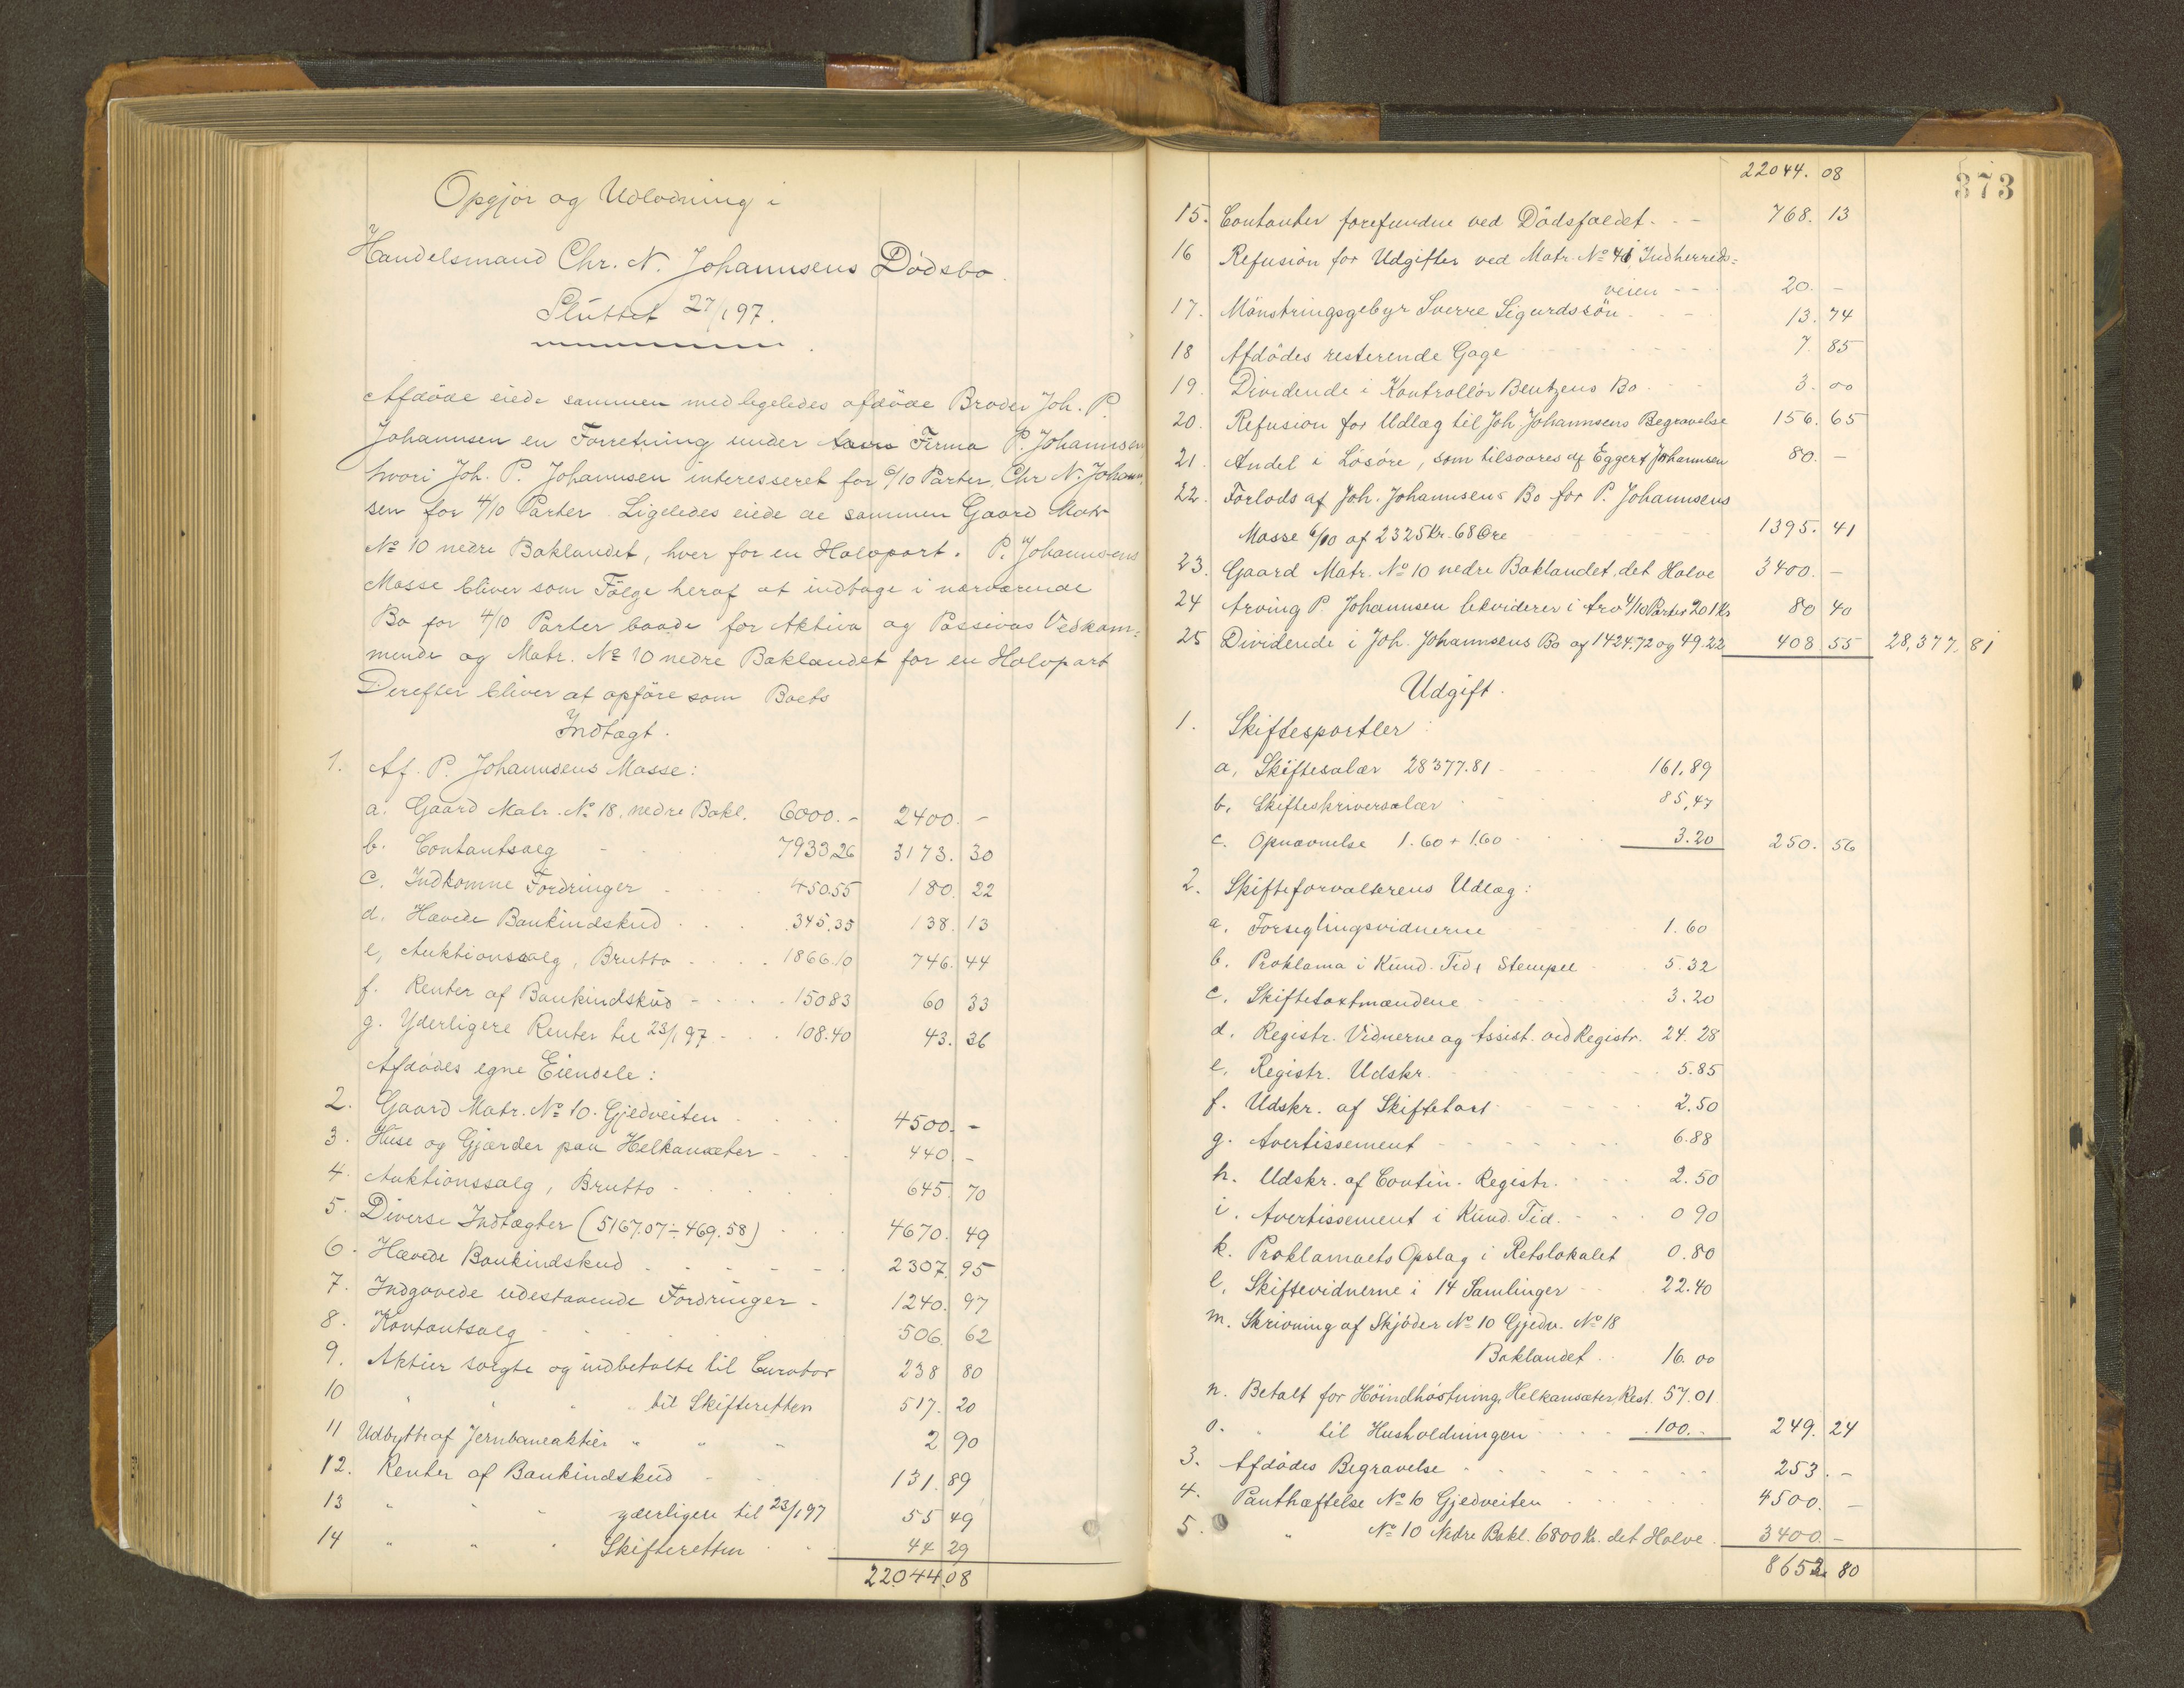 Opgjør og Udlodning i
Handelsmand Chr. N. Johannsens Dødsbo.
Sluttet 27/1 97.
Afdøde eiede sammen med ligeledes afdøde Broder Joh. P.
Johannsen en Forretning under Firma P. Johannsen
hvori Joh. P. Johannsen interesseret for 6/10 Parter, Chr N. Johann-
sen for 4/10 Parter. Ligeledes eiede de sammen Gaard Matr
No 10 nedre Baklandet, hver for en Halvpart. P. Johannsens
Masse bliver som Følge heraf at indtage i nærværende
Bo for 4/10 Parter baade for Aktiva og Passivas Vedkom-
mende og Matr. No 10 nedre Baklandet for en Halvpart
Derefter bliver at opføre som Boets
Indtægt.
1. Af P. Johannsens Masse:
a. Gaard Matr. No 18, nedre Bakl. 6000.- 2400. -
b. Contantsalg - 7933.26 3173. 30
c. Indkomne Fordringer - 450.55 180. 22
d. Hævede Bankindskud . . . 345.35 138. 13
e, Auktionssalg, Brutto - . . . 1866.10 746. 44
f. Renter af Bankindskud - . . . 150.83 60 33
g. Yderligere Renter til 23/1 97 - . . 108.40 43. 36
Afdødes egne Eiendele:
2. Gaard Matr. No 10. Gjedveiten 4500. -
3. Huse og Gjærder paa Helkansæter - 440. -
4. Auktionssalg, Brutto - 645. 70
5. Diverse Indtægter (5167.07 ÷ 469.58) 4670. 49
6. Hævede Bankindskud - - - - - 2307. 95
7. Indgaaede udestaaende Fordringer - 1240. 97
8. Kontantsalg 506. 62
9. Aktier solgte og indbetalte til Curator 238 80
10 " " " til Skifteretten 517. 20
11 Udbytte af Jernbaneaktier " " " 2 90
12. Renter af Bankindskud - 131. 89
13 " " yderligere til 23/1 97 55 49
14 " " " Skifteretten 44 29
22044.08
373
22044. 08
15. Contanter forefundne ved Dødsfaldet - - 768. 13
16 Refusion for Udgifter ved Matr. No 41 Indherreds=
veien - - 20. -
17. Mönstringsgebyr Sverre Sigurdssön 13. 74
18 Afdødes resterende Gage 7. 85
19. Dividende i Kontrollör Bentzens Bo 3. 00
20. Refusion for Udlæg til Joh. Johannsens Begravelse 156. 65
21. Andel i Løsöre, som tilsvares af Eggert Johannsen 80. -
22. Forlods af Joh. Johannsens Bo for P. Johannsens
Masse 6/10 af 2325 Kr. 68 Øre 1395. 41
23. Gaard Matr. No 10 nedre Baklandet, det Halve 3400. -
24 Arving P. Johannsen likviderer i Arv 4/10 Parter 201 Kr 80 40
25 Dividende i Joh. Johannsens Bo af 1424.72 og 49.22 408 55 28,377. 81
Udgift.
1. Skiftesportler:
a, Skiftesalær 28377.81 - 161.89
b, Skifteskriversalær 85,47
c. Opnævnelse 1.60 + 1.60 3.20 250. 56
2. Skifteforvalterens Udlæg:
a, Forseglingsvidnerne 1.60
b. Proklama i Kund. Tid & Stempel 5.32
c. Skiftetaxtmændene 3.20
d. Registr. Vidnerne og Assist. ved Registr. 24.28
e, Registr. Udskr. 5.85
f. Udskr. af Skiftetaxt 2.50
g. Avertissement 6.88
h. Udskr. af Contin. Registr. 2.50
i. Avertissement i Kund. Tid. 0 90
k. Proklamaets Opslag i Retslokalet 0.80
l, Skiftevidnerne i 14 Samlinger 22.40
m. Skrivning af Skjöder No 10 Gjedv. No 18
Baklandet 16.00
n. Betalt for Höindhöstning, Helkansæter, Rest. 57.01
o. " til Husholdningen 100.- 249. 24
3. Afdödes Begravelse - 253. -
4. Panthæftelse No 10 Gjedveiten 4500. -
5. " No 10 Nedre Bakl. 6800 Kr. det Halve 3400 -
8652. 80